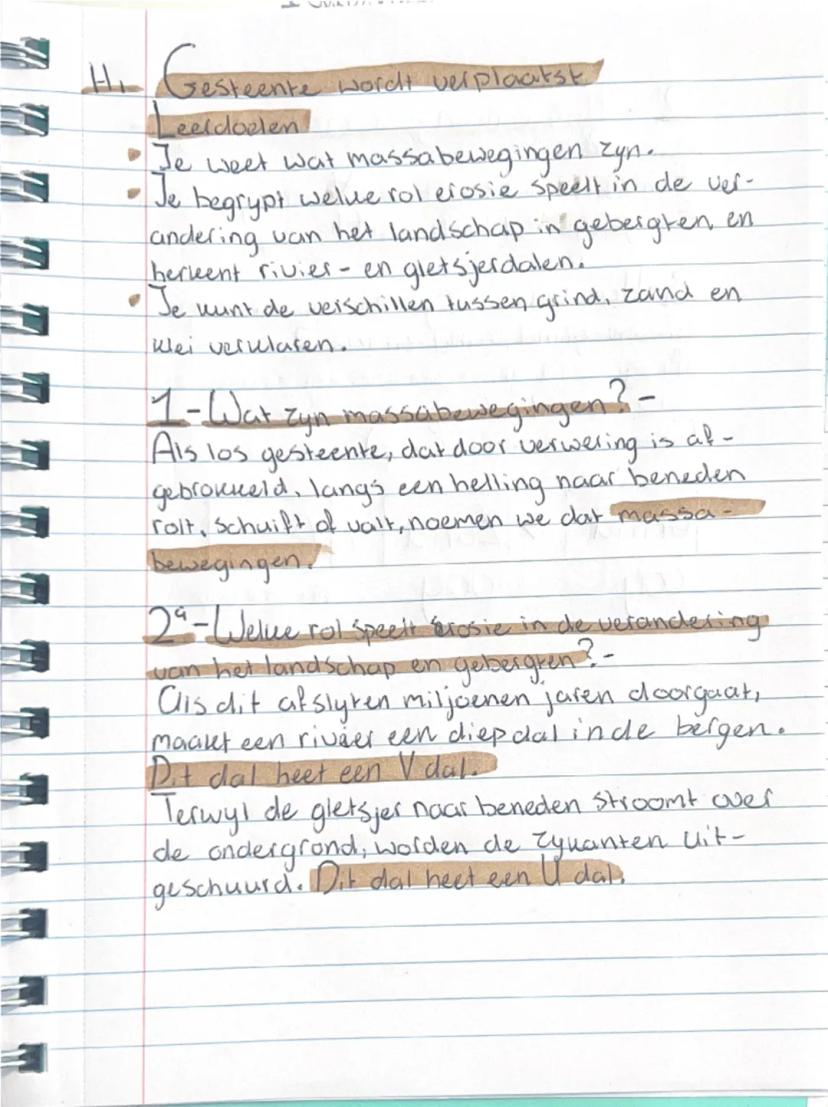 H. Gesteente wordt verplaatst
Leerdoelen
• Je weet wat massabewegingen zyn.
• Je begrypt welke rol erosie speelt in de ver-
andering van het landschap in gebergten en
herkent rivier- en gletsjerdalen.
• Je kunt de verschillen tussen grind, zand en
klei verklaren.
1 - Wat zyn massabewegingen? -
Als los gesteente, dat door verwering is af-
gebrokkeld, langs een helling naar beneden
rolt, schuift of valt, noemen we dat massa-
bewegingen.
2a - Welke rol speelt erosie in de verandering
van het landschap en gebergten? -
Als dit afslyten miljoenen jaren doorgaat,
maakt een rivier een diep dal in de bergen.
Dit dal heet een V dal.
Terwyl de gletsjer naar beneden stroomt over
de ondergrond, worden de zykanten uit-
geschuurd. Dit dal heet een U dal.